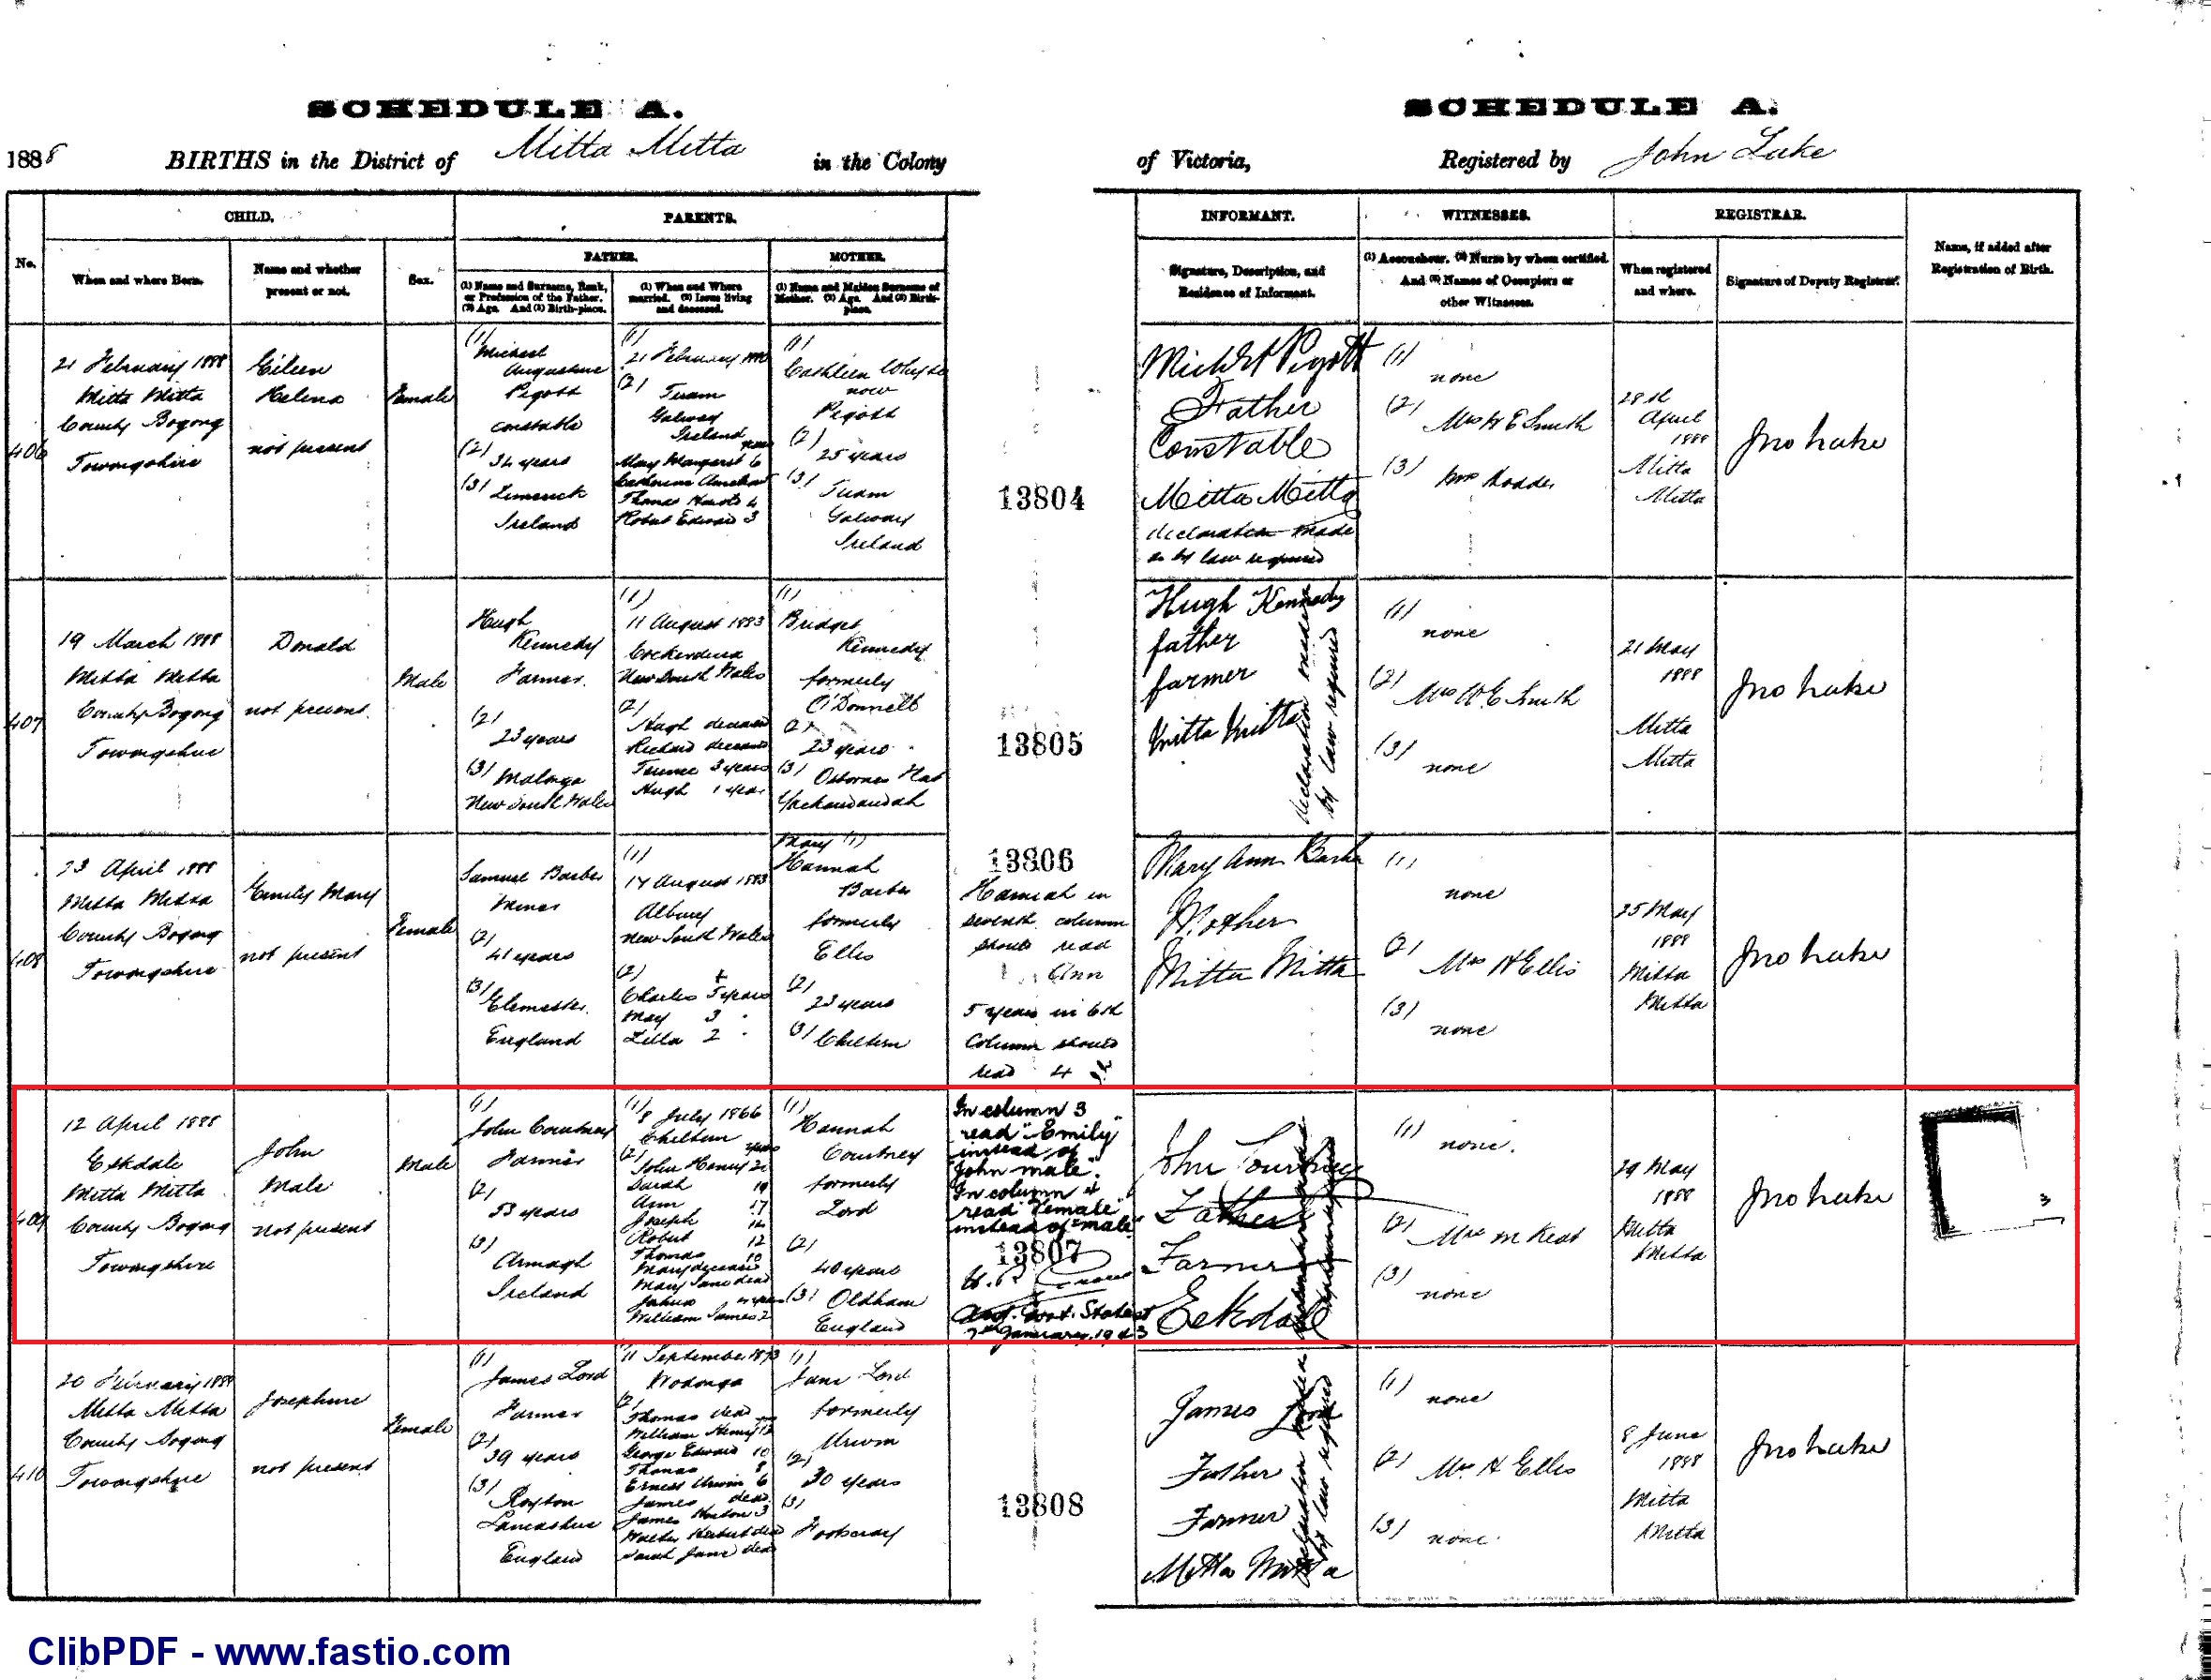 SCHEDULE A.
SCHEDULE A.
1888 BIRTHS in the District of Mitta Mitta in the Colony of Victoria, Registered by John Luke
CHILD.
PARENTS.
INFORMANT.
WITNESSES.
REGISTRAR.
No.
When and where Born.
Name and whether
present or not.
Sex.
FATHER.
MOTHER.
(1) Name and Surname, Rank,
or Profession of the Father.
(2) Age. And (3) Birth-place.
(1) When and Where
married. (2) Issue living
and deceased.
(1) Name and Maiden Surname of
Mother. (2) Age. And (3) Birth-
place.
Signature, Description, and
Residence of Informant.
(1) Accoucheur. (2) Nurse by whom certified.
And (3) Names of Occupiers or
other Witnesses.
When registered
and where.
Signature of Deputy Registrar.
Name, if added after
Registration of Birth.
406
21 February 1888
Mitta Mitta
County Bogong
Towongshire
Eileen
Helena
not present
Female
(1)
Michael
Augustine
Pigott
constable
(2)
34 years
(3) Limerick
Ireland
(1)
21 February
(2) Tuam
Galway
Ireland
years
Mary Margaret 6
Catherine
Thomas 4
Robert Edward 3
(1)
Cathleen
now
Pigott
(2)
25 years
(3)
Tuam
Galway
Ireland
13804
Pigott
Father
Constable
Mitta Mitta
declaration made
as by law required
(1)
none
(2) Mrs H E Smith
(3) Mrs Hodder
28th
April
1888
Mitta
Mitta
Jno Luke
407
19 March 1888
Mitta Mitta
County Bogong
Towongshire
Donald
not present.
Male
Hugh
Kennedy
Farmer.
(2)
23 years
(3) Malonga
New South Wales
(1)
11 August 1883
New South Wales
(2)
Hugh deceased
Richard deceased
3 years
Hugh 1 year
(1)
Bridget
Kennedy
formerly
O'Donnell
(2)
23 years
(3) Osbornes Flat
Yackandandah
13805
Hugh Kennedy
father
farmer
Mitta Mitta
declaration made
by law required
(1)
none
(2) Mrs H E Smith
(3)
none
21 May
1888
Mitta
Mitta
Jno Luke
408
23 April 1888
Mitta Mitta
County Bogong
Towongshire
Emily Mary
not present
Female
Samuel Barber
Miner
(2)
41 years
(3)
England
(1)
14 August 1883
Albury
New South Wales
(2)
Charles 5 years
May 3
Lilla 2
Mary (1)
Hannah
Barber
formerly
Ellis
(2)
23 years
(3) Chiltern
13806
Hannah in
seventh column
should read
Ann
5 years in 6th
Column should
read 4
Mary Ann Barber
Mother
Mitta Mitta
(1)
none
(2) Mrs H Ellis
(3)
none
25 May
1888
Mitta
Mitta
Jno Luke
409
12 April 1888
Eskdale
Mitta Mitta
County Bogong
Towongshire
John
Male
not present
Male
(1)
John Courtney
Farmer
(2)
53 years
(3)
Armagh
Ireland
(1) 8 July 1866
Chiltern
(2) years
John Henry 21
Sarah 19
Ann 17
Joseph 14
Robert 12
Thomas 10
Mary deceased
Mary Jane dead
Joshua
William James 2
(1)
Hannah
Courtney
formerly
Lord
(2)
40 years
(3) Oldham
England
In column 3
read "Emily"
instead of
"John male".
In column 4
read "Female"
instead of "male"
13807
Govt. Statist
7th January, 1943
John Courtney
Father
Farmer
Eskdale
(1)
none.
(2) Mrs M Keat
(3)
none
29 May
1888
Mitta
Mitta
Jno Luke
410
20 February 1888
Mitta Mitta
County Bogong
Towongshire
Josephine
not present
Female
(1)
James Lord
Farmer
(2)
39 years
(3)
Royton
Lancashire
England
11 September 1873
Wodonga
(2)
Thomas dead
William Henry 12
George Edward 10
Thomas 8
Ernest Urwin 6
James dead
James 3
Walter Herbert dead
Sarah Jane dead
(1)
Jane Lord
formerly
Urwin
(2)
30 years
(3)
Footscray
13808
James Lord
Father
Farmer
Mitta Mitta
declaration made
by law required
(1)
none
(2) Mrs H Ellis
(3)
none.
8 June
1888
Mitta
Mitta
Jno Luke
ClibPDF - www.fastio.com